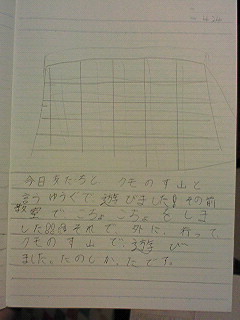 今日 友だちと クモのす山と
言う ゆうぐで 遊びました。その前
教室で こちょ こちょ をしま
した。それで、外に、行って
クモのす山で 遊び
ました。たのしかったです。